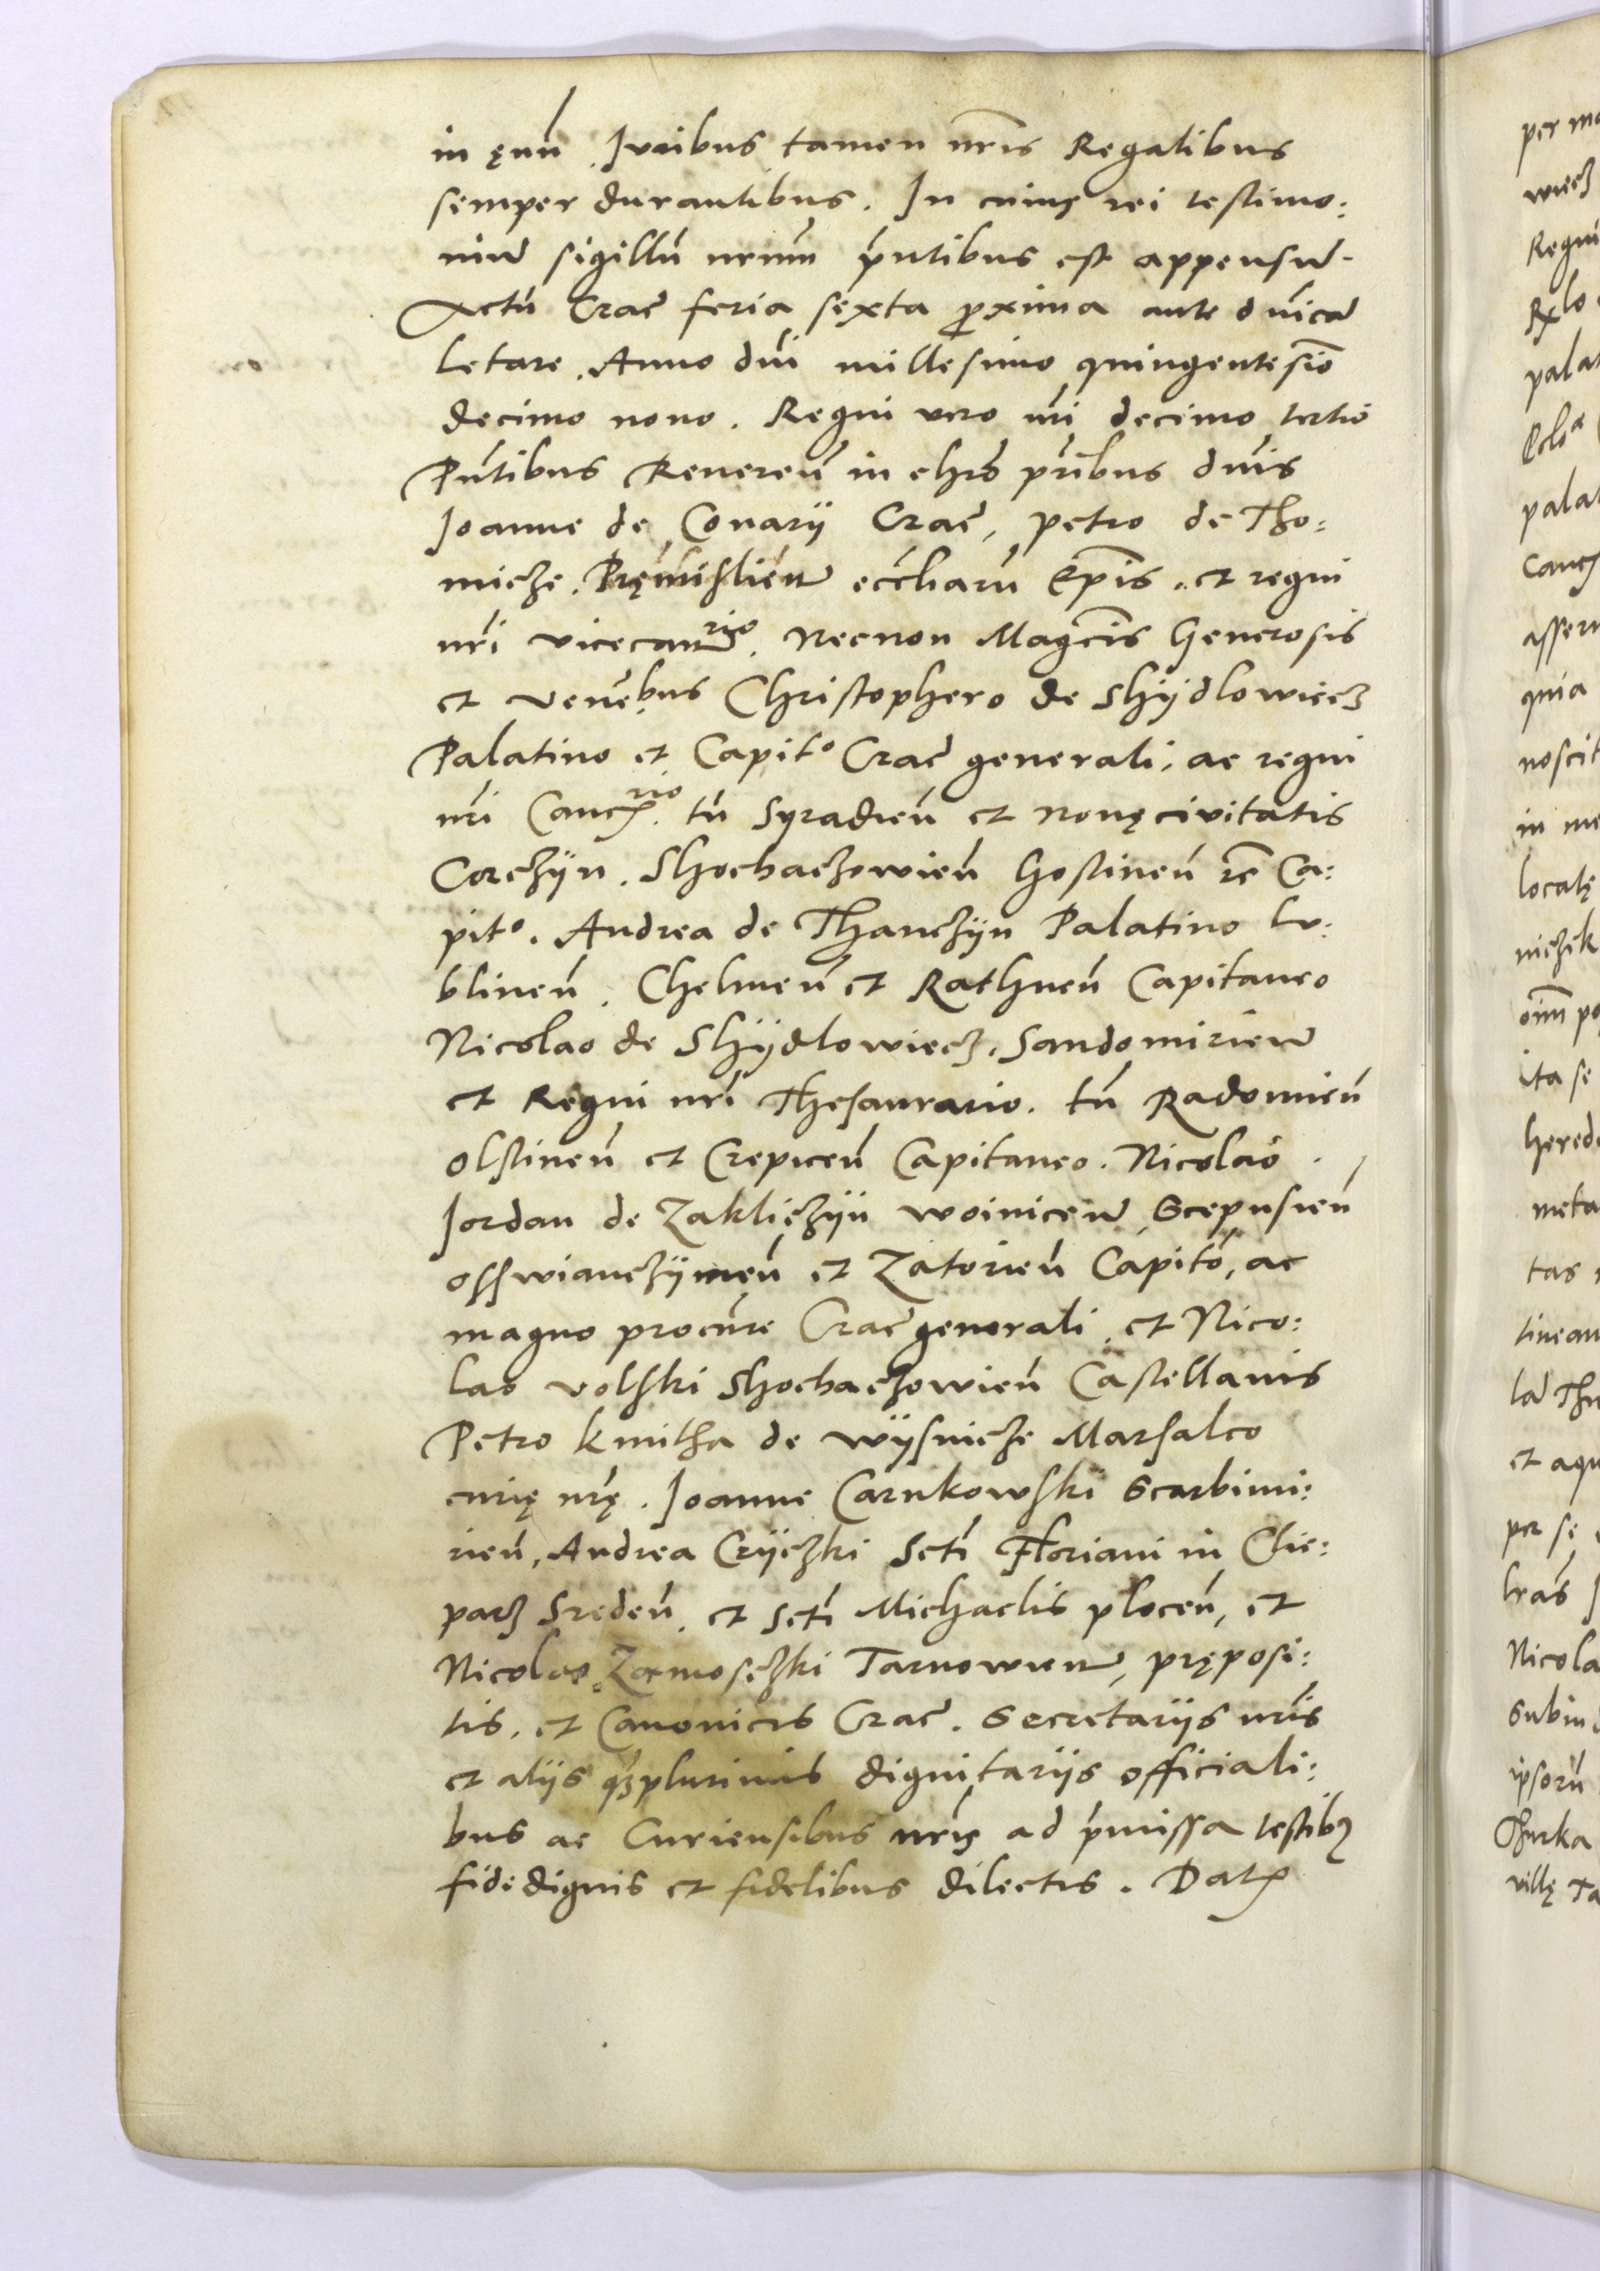 in ęuū Juribus tamen nr̄is Regalibus
semper durantibus. In cuius rei testimo:
niū sigillū nrum pn̄tibus est appensū.
Actū Crac̄ feria sexta proxima ante dn̄icā
letare. Anno dn̄i millesimo quingentesīo
decimo nono. Regni vero nr̄i decimo tertio
Pn̄tibus Reveren̄ in chro pr̄ibus dn̄is
Joanne de Conarÿ Crac̄, Petro de Tho:
micze. Pręmislien̄ eccl̄iarū Ep̄is. et regni
nr̄i vicecan̄rio. Necnon Magc̄is Generosis
et Venēbus Christophero de Shÿdlowiecz
Palatino et Capito Crac̄ generali, ac regni
nr̄i Cancrio. tū Syradien̄ et nouęcivitatis
Corczÿn. Shochaczowien̄ Gostinen̄ rē Ca:
pito. Andrea de Thanczÿn Palatino Lu:
blinen̄. Chelmen̄ et Rathnen̄ Capitaneo
Nicolao de Shÿdlowiecz. Sandomirien̄
et Regni nr̄i Thesaurario. tū Radomien̄
Olstinen̄ et Crepicen̄ Capitaneo. Nicolao
Jordan de Zakliczÿn woinicen̄, Scepusien̄
osswianczÿmen̄ et Zatorien̄ Capito, ac
magno procūre Crac̄ generali, et Nico:
lao volski Shochaczowien̄ Castellanis
Petro kmitha de wÿsnicze Marsalco
curię nr̄ę. Joanne Carnkowski Scarbimi:
rien̄, Andrea Crÿczki Sctī Floriani in Cle:
parz Sreden̄, et Sctī Michaelis plocen̄, et
Nicolao Zamosczki Tarnowien̄, pręposi:
tis, et Canonicis Crac̄. Secretarÿs nr̄is
et alÿs qzplurimis dignitarÿs officiali:
bus ac Curiensibus nr̄is ad pmissa testibꝫ
fidedignis et fidelibus dilectis. Datꝝ
per
wiecz
Regni
palat
palat
Canc
asser
quia
noscit
in me
locatę
niczik
ita se
hered
meta
tas
tinean
et aqu
per se
Nicola
Subin
ipsorū
Thurka
villę Ta